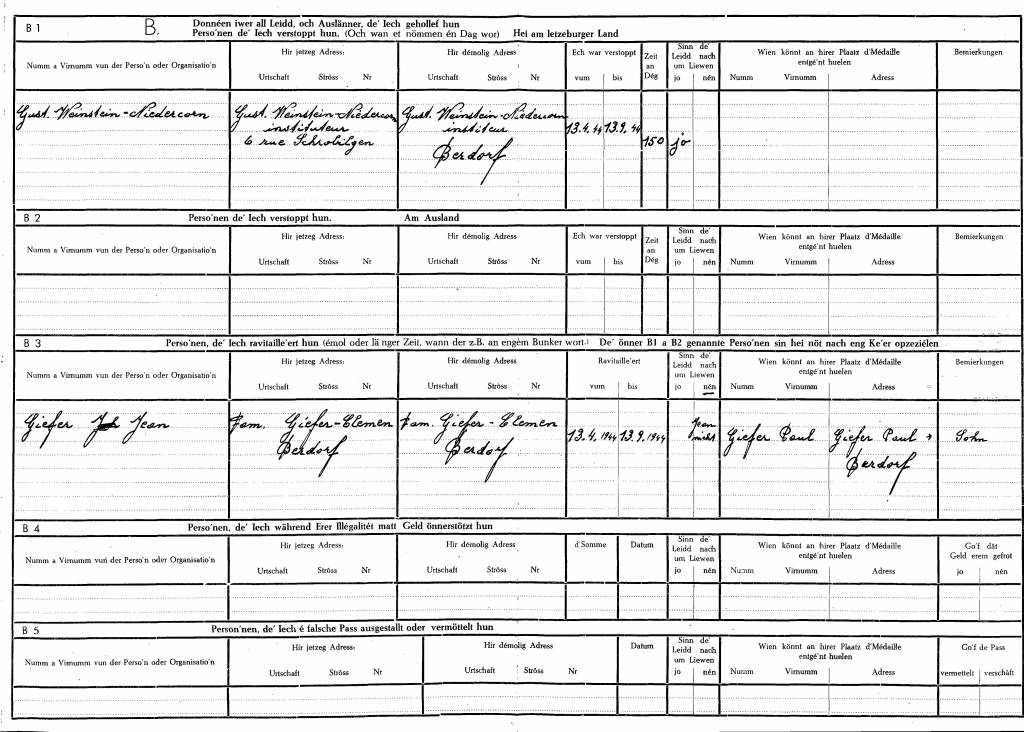 B 1
B.
Donnéen iwer all Leidd, och Auslänner, de' Iech gehollef hun
Perso'nen de' Iech verstoppt hun. (Och wan et nömmen én Dag wor) Hei am letzeburger Land
Numm a Virnumm vun der Perso'n oder Organisatio'n
Hir jetzeg Adress:
Urtschaft Ströss Nr
Hir démolig Adress
Urtschaft Ströss Nr
Ech war verstoppt
vum bis
Zeit
an
Dég
Sinn de'
Leidd nach
um Liewen
jo nén
Wien könnt an hirer Plaatz d'Médaille
entgé'nt huelen
Numm Virnumm Adress
Bemierkungen
Gust. Weinstein-Niedercorn
Gust. Weinstein-Niedercorn
instituteur
6 rue Schrobilgen
Gust. Weinstein-Niedercorn
instituteur
Berdorf
13.4.44 13.9.44
150
jo
B 2
Perso'nen de' Iech verstoppt hun. Am Ausland
Numm a Virnumm vun der Perso'n oder Organisatio'n
Hir jetzeg Adress:
Urtschaft Ströss Nr
Hir démolig Adress
Urtschaft Ströss Nr
Ech war verstoppt
vum bis
Zeit
an
Dég
Sinn de'
Leidd nach
um Liewen
jo nén
Wien könnt an hirer Plaatz d'Médaille
entgé'nt huelen
Numm Virnumm Adress
Bemierkungen
B 3
Perso'nen, de' Iech ravitaille'ert hun (émol oder lä nger Zeit, wann der z.B. an engém Bunker wort.) De' önner B1 a B2 genannte Perso'nen sin hei nöt nach eng Ke'er opzeziélen
Numm a Virnumm vun der Perso'n oder Organisatio'n
Hir jetzeg Adress:
Urtschaft Ströss Nr
Hir démolig Adress
Urtschaft Ströss Nr
Ravitaille'ert
vum bis
Sinn de'
Leidd nach
um Liewen
jo nén
Wien könnt an hirer Plaatz d'Médaille
entgé'nt huelen
Numm Virnumm Adress
Bemierkungen
Giefer Jean
Fam. Giefer-Clemen
Berdorf
Fam. Giefer-Clemen
Berdorf
13.4.1944 13.9.1944
Jean
nicht
Giefer Paul
Giefer Paul
Berdorf
Sohn
B 4
Perso'nen, de' Iech während Erer Illégalitét matt Geld önnerstötzt hun
Numm a Virnumm vun der Perso'n oder Organisatio'n
Hir jetzeg Adress:
Urtschaft Ströss Nr
Hir démolig Adress
Urtschaft Ströss Nr
d'Somme
Datum
Sinn de'
Leidd nach
um Liewen
jo nén
Wien könnt an hirer Plaatz d'Médaille
entgé'nt huelen
Numm Virnumm Adress
Go'f dât
Geld erem gefrot
jo nén
B 5
Person'nen, de' Iech é falsche Pass ausgestallt oder vermöttelt hun
Numm a Virnumm vun der Perso'n oder Organisatio'n
Hir jetzeg Adress:
Urtschaft Ströss Nr
Hir démolig Adress
Urtschaft Ströss Nr
Datum
Sinn de'
Leidd nach
um Liewen
jo nén
Wien könnt an hirer Plaatz d'Médaille
entgé'nt huelen
Numm Virnumm Adress
Go'f de Pass
vermettelt verschâft